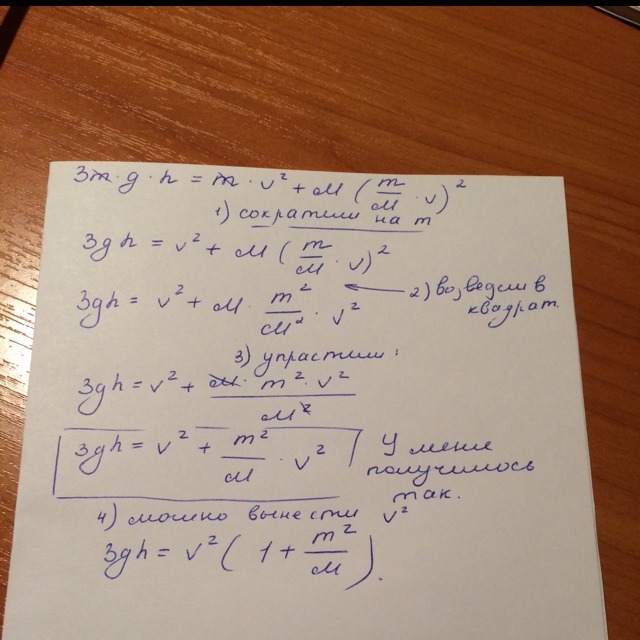 3m · g · h = m · v² + M (m/M · v)²
1) сократили на m
3gh = v² + M (m/M · v)²
3gh = v² + M · m²/M² · v² ← 2) возведли в квадрат.
3) упрастили:
3gh = v² + M · m² · v² / M²
3gh = v² + m²/M · v²
У меня
получилось
так.
4) можно вынести v²
3gh = v² (1 + m²/M).